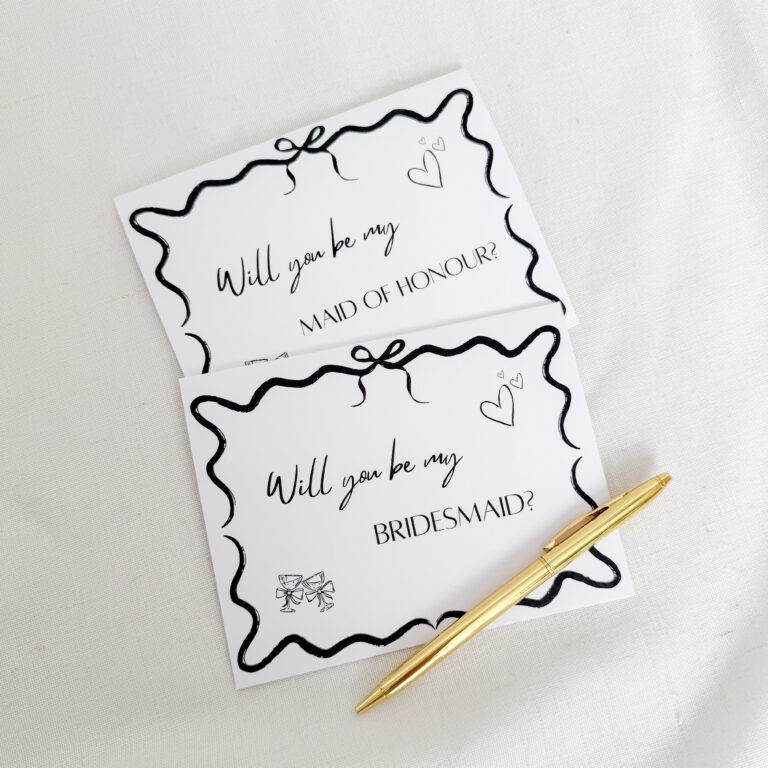 Will you be my
MAID OF HONOUR?
Will you be my
BRIDESMAID?